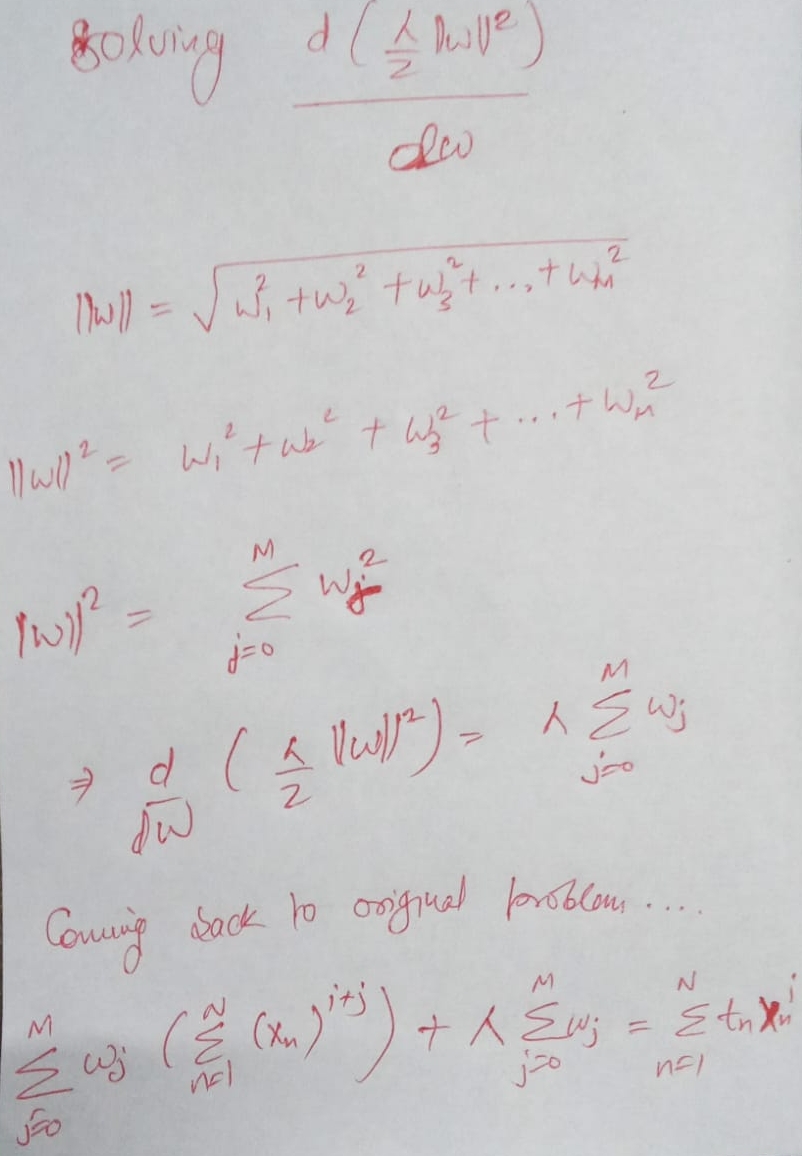 Solving d(λ/2 ||w||²)/dw
||w|| = √(w₁² + w₂² + w₃² + ... + w_M²)
||w||² = w₁² + w₂² + w₃² + ... + w_M²
||w||² = Σ_{j=0}^{M} w_j²
⇒ d/dw (λ/2 ||w||²) = λ Σ_{j=0}^{M} w_j
Coming back to original problem ....
Σ_{j=0}^{M} w_j (Σ_{n=1}^{N} (x_n)^{i+j}) + λ Σ_{j=0}^{M} w_j = Σ_{n=1}^{N} t_n x_n^i